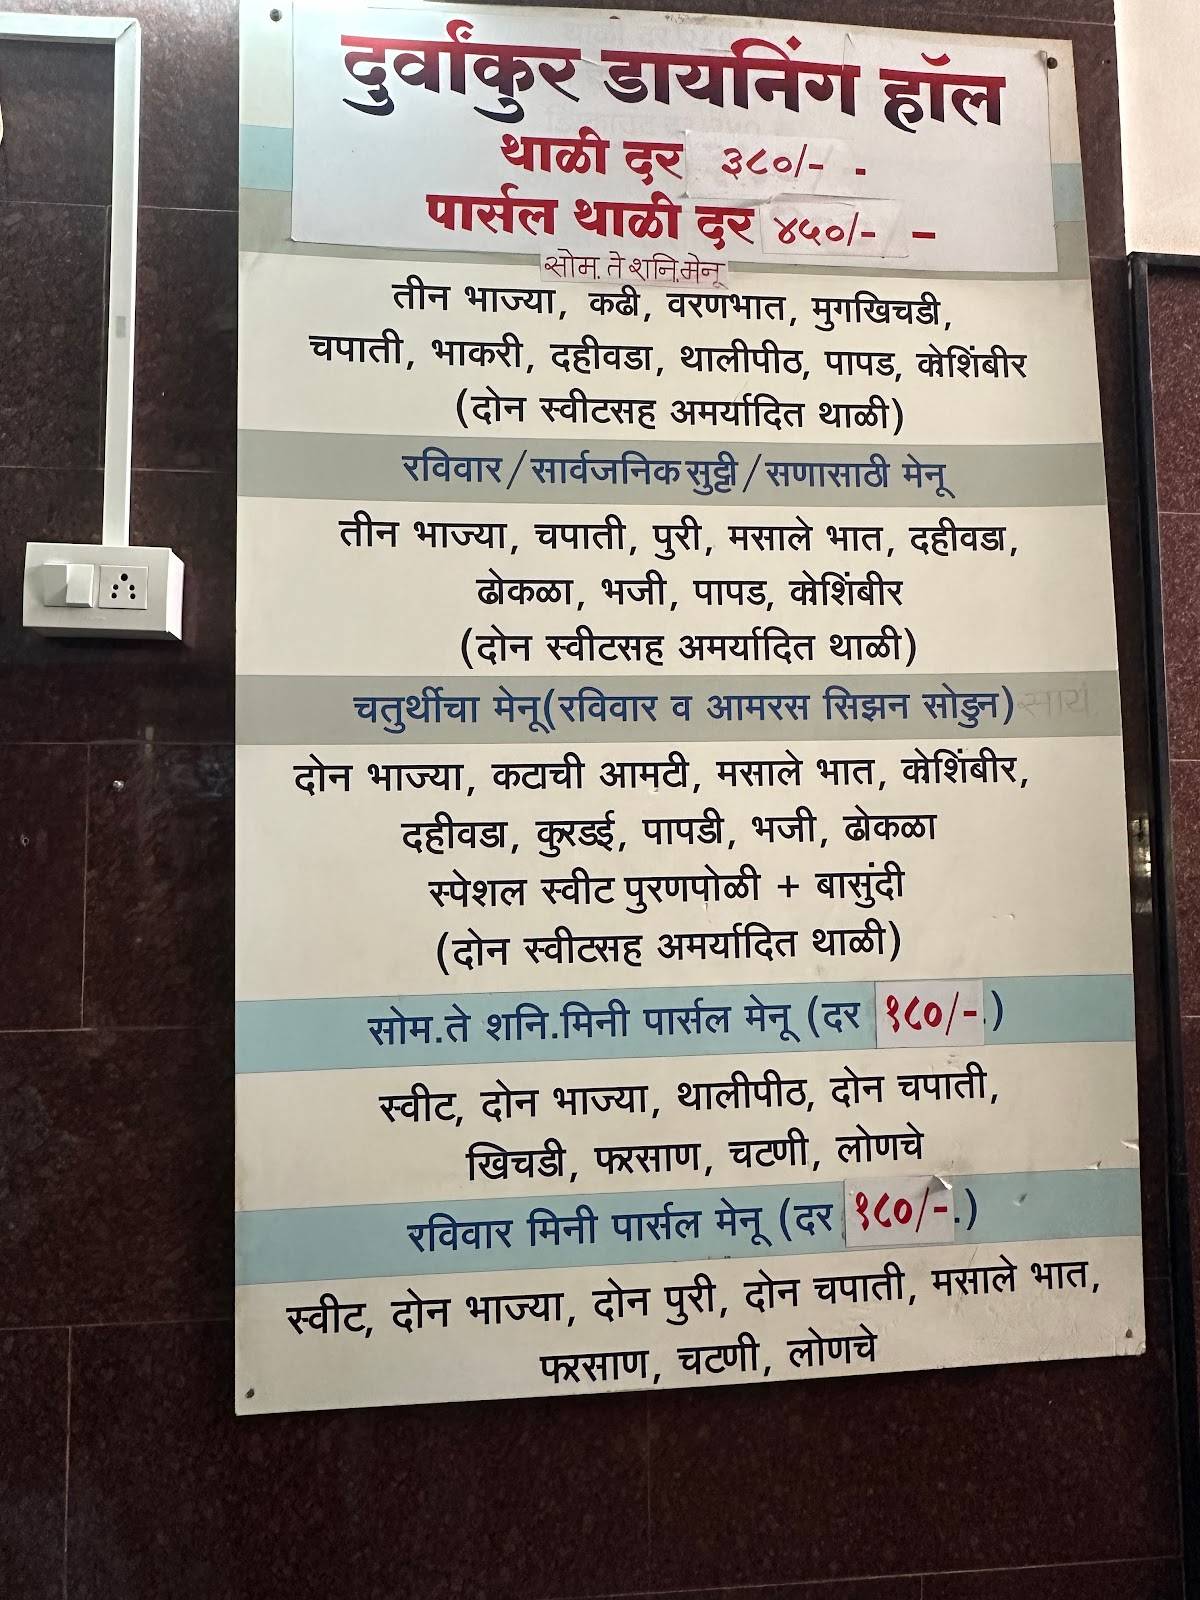 दुर्वांकुर डायनिंग हॉल
थाळी दर ३८०/- -
पार्सल थाळी दर ४५०/- -
सोम. ते शनि. मेनू
तीन भाज्या, कढी, वरणभात, मुगखिचडी,
चपाती, भाकरी, दहीवडा, थालीपीठ, पापड, कोशिंबीर
(दोन स्वीटसह अमर्यादित थाळी)
रविवार/सार्वजनिक सुट्टी/सणासाठी मेनू
तीन भाज्या, चपाती, पुरी, मसाले भात, दहीवडा,
ढोकळा, भजी, पापड, कोशिंबीर
(दोन स्वीटसह अमर्यादित थाळी)
चतुर्थीचा मेनू(रविवार व आमरस सिझन सोडुन) सायं.
दोन भाज्या, कटाची आमटी, मसाले भात, कोशिंबीर,
दहीवडा, कुरडई, पापडी, भजी, ढोकळा
स्पेशल स्वीट पुरणपोळी + बासुंदी
(दोन स्वीटसह अमर्यादित थाळी)
सोम.ते शनि.मिनी पार्सल मेनू (दर १८०/-.)
स्वीट, दोन भाज्या, थालीपीठ, दोन चपाती,
खिचडी, फरसाण, चटणी, लोणचे
रविवार मिनी पार्सल मेनू (दर १८०/-.)
स्वीट, दोन भाज्या, दोन पुरी, दोन चपाती, मसाले भात,
फरसाण, चटणी, लोणचे